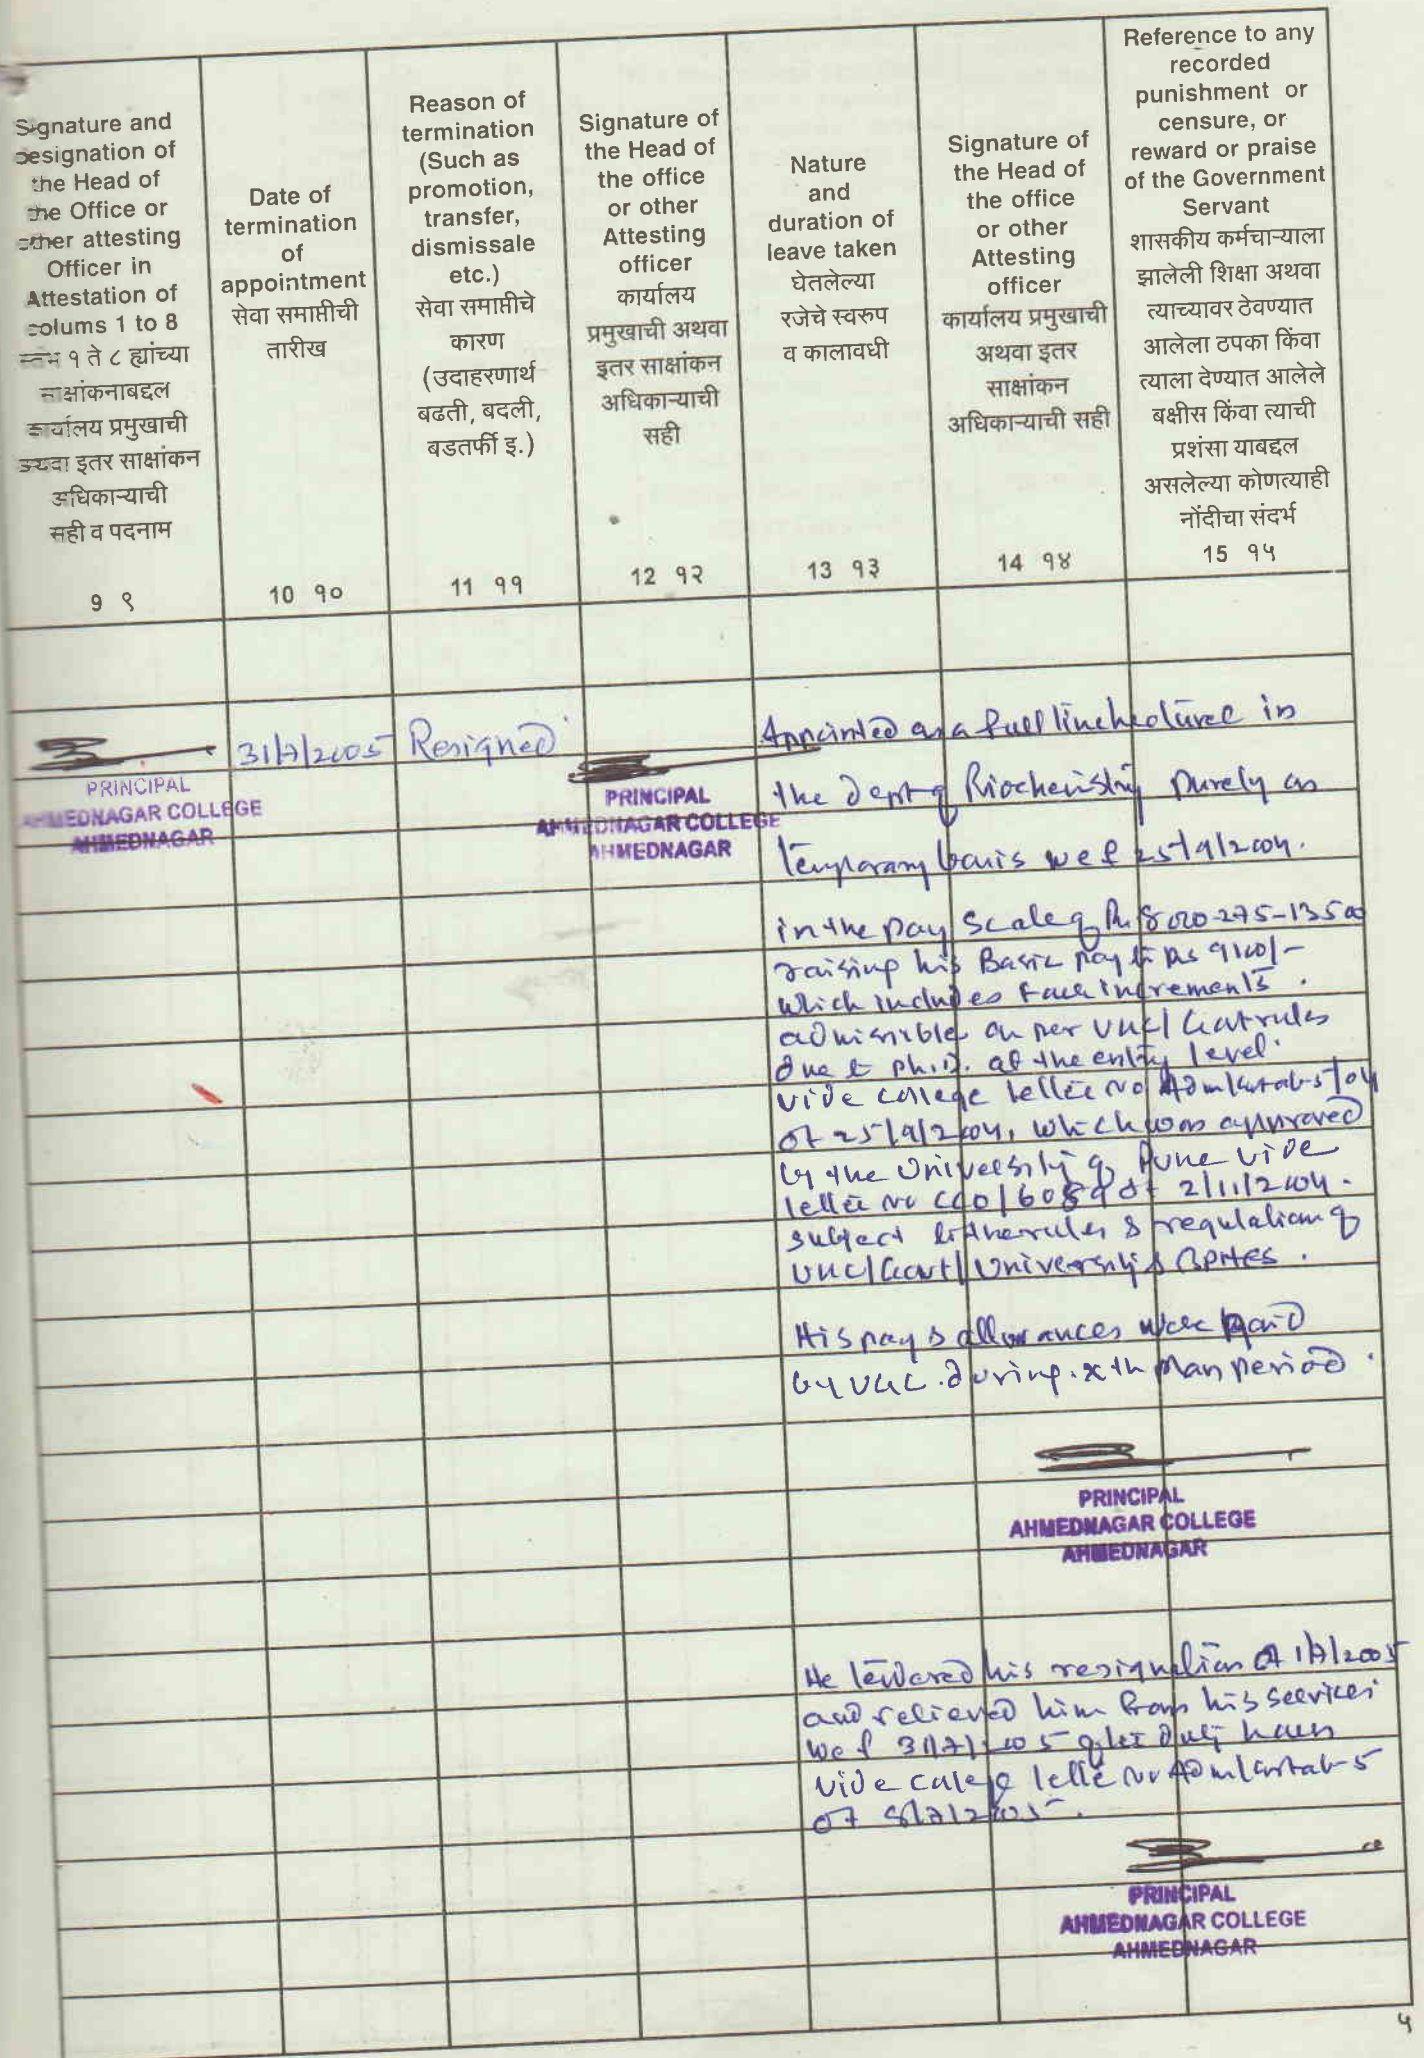 Signature and
designation of
the Head of
the Office or
other attesting
Officer in
Attestation of
colums 1 to 8
स्तंभ १ ते ८ ह्यांच्या
साक्षांकनाबद्दल
कार्यालय प्रमुखाची
अथवा इतर साक्षांकन
अधिकाऱ्याची
सही व पदनाम
9 ९
Date of
termination
of
appointment
सेवा समाप्तीची
तारीख
10 १०
Reason of
termination
(Such as
promotion,
transfer,
dismissale
etc.)
सेवा समाप्तीचे
कारण
(उदाहरणार्थ
बढती, बदली,
बडतर्फी इ.)
11 ११
Signature of
the Head of
the office
or other
Attesting
officer
कार्यालय
प्रमुखाची अथवा
इतर साक्षांकन
अधिकाऱ्याची
सही
12 १२
Nature
and
duration of
leave taken
घेतलेल्या
रजेचे स्वरुप
व कालावधी
13 १३
Signature of
the Head of
the office
or other
Attesting
officer
कार्यालय प्रमुखाची
अथवा इतर
साक्षांकन
अधिकाऱ्याची सही
14 १४
Reference to any
recorded
punishment or
censure, or
reward or praise
of the Government
Servant
शासकीय कर्मचाऱ्याला
झालेली शिक्षा अथवा
त्याच्यावर ठेवण्यात
आलेला ठपका किंवा
त्याला देण्यात आलेले
बक्षीस किंवा त्याची
प्रशंसा याबद्दल
असलेल्या कोणत्याही
नोंदीचा संदर्भ
15 १५
PRINCIPAL
AHMEDNAGAR COLLEGE
AHMEDNAGAR
31/7/2005
Resigned
PRINCIPAL
AHMEDNAGAR COLLEGE
AHMEDNAGAR
Appointed as a full time lecturer in
the dept of Biochemistry purely on
temporary basis wef 25/9/2004.
in the pay scale of Rs 8000-275-13500
raising his Basic pay to Rs 9100/-
which includes four increments.
admissible as per UGC/Govt rules
due to Ph.D. at the entry level.
vide college letter no Adm/ /04
dt 25/9/2004, which was approved
by the University of Pune vide
letter no CCO/6089 dt 2/11/2004.
subject to the rules & regulation of
UGC/Govt/University &
His pay & allowances were paid
by UGC. during. xth plan period.
PRINCIPAL
AHMEDNAGAR COLLEGE
AHMEDNAGAR
He tendered his resignation dt 1/7/2005
and relieved him from his services
wef 31/7/2005 after duty hours
vide college letter no Adm/
dt 8/7/2005.
PRINCIPAL
AHMEDNAGAR COLLEGE
AHMEDNAGAR
५